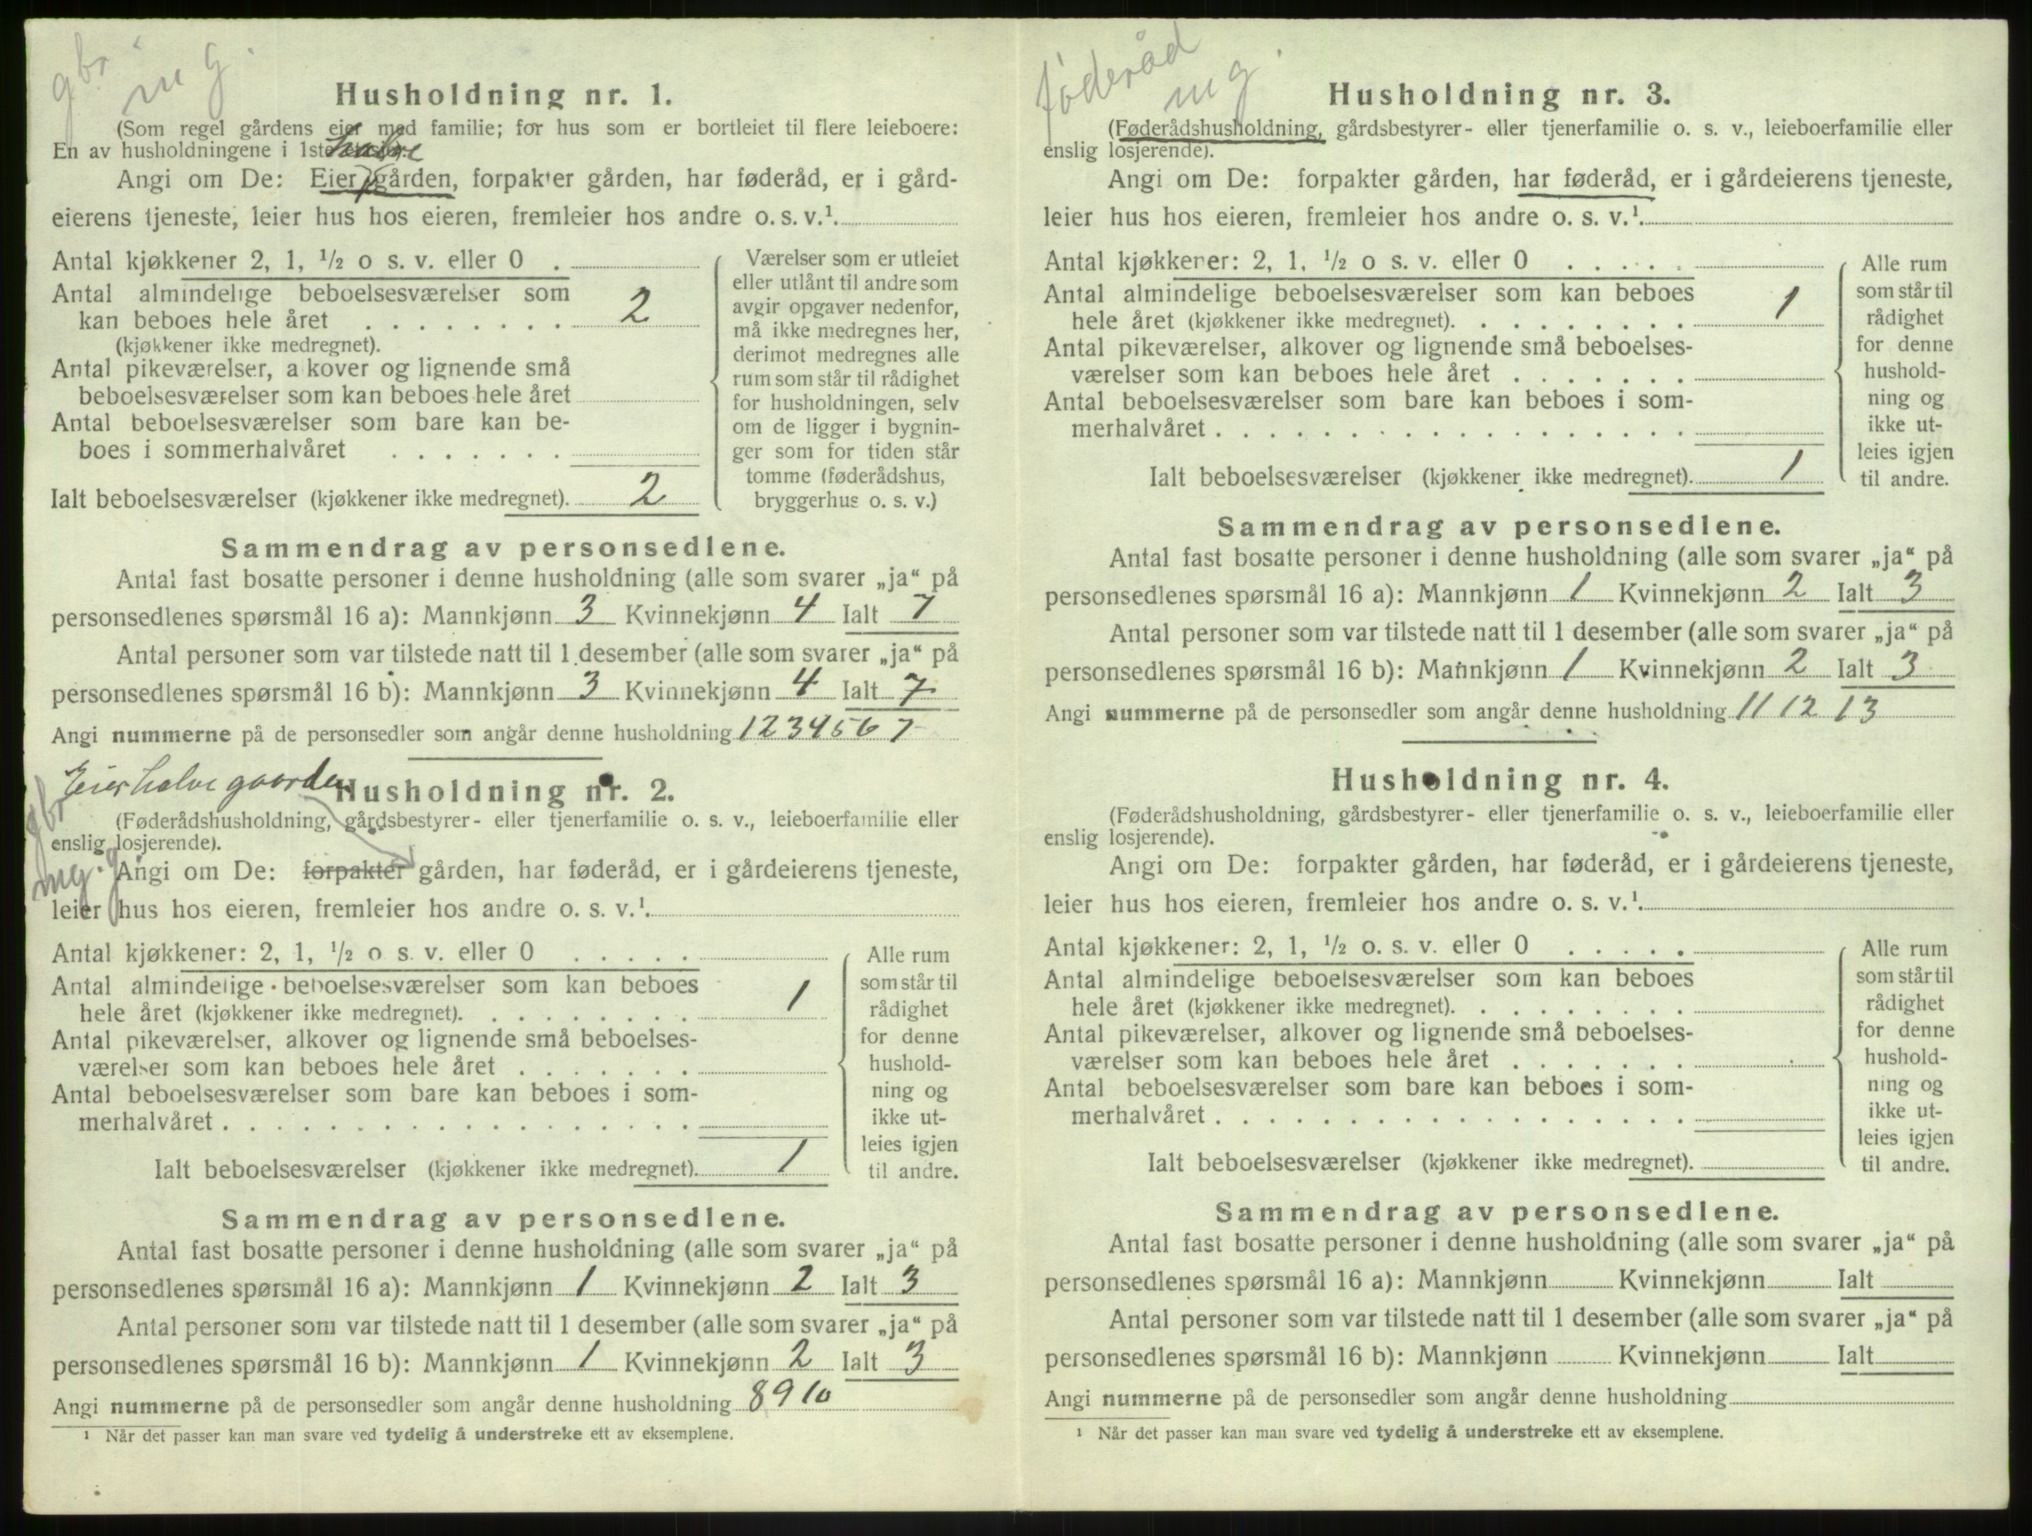 gbr.
m g.
Husholdning nr. 1.
(Som regel gårdens eier med familie; for hus som er bortleiet til flere leieboere:
En av husholdningene i 1ste
halve
Angi om De: Eier gården, forpakter gården, har føderåd, er i gård-
eierens tjeneste, leier hus hos eieren, fremleier hos andre o. s. v.¹.
Antal kjøkkener 2, 1, ½ o s. v. eller 0 .
Antal almindelige beboelsesværelser som
kan beboes hele året . . . . . . . . 2
(kjøkkener ikke medregnet).
Antal pikeværelser, a kover og lignende små
beboelsesværelser som kan beboes hele året
Antal beboelsesværelser som bare kan be-
boes i sommerhalvåret . . . . . . .
Ialt beboelsesværelser (kjøkkener ikke medregnet). 2
Værelser som er utleiet
eller utlånt til andre som
avgir opgaver nedenfor,
må ikke medregnes her,
derimot medregnes alle
rum som står til rådighet
for husholdningen, selv
om de ligger i bygnin-
ger som for tiden står
tomme (føderådshus,
bryggerhus o. s. v.)
Sammendrag av personsedlene.
Antal fast bosatte personer i denne husholdning (alle som svarer „ja“ på
personsedlenes spørsmål 16 a): Mannkjønn 3 Kvinnekjønn 4 Ialt 7
Antal personer som var tilstede natt til 1 desember (alle som svarer „ja“ på
personsedlenes spørsmål 16 b): Mannkjønn 3 Kvinnekjønn 4 Ialt 7
Angi nummerne på de personsedler som angår denne husholdning 1 2 3 4 5 6 7
Eier halve gaarden
gbr
mg.
Husholdning nr. 2.
(Føderådshusholdning, gårdsbestyrer- eller tjenerfamilie o. s. v., leieboerfamilie eller
enslig losjerende).
Angi om De: forpakter gården, har føderåd, er i gårdeierens tjeneste,
leier hus hos eieren, fremleier hos andre o. s. v.¹.
Antal kjøkkener: 2, 1, ½ o s. v. eller 0 . . . . .
Antal almindelige beboelsesværelser som kan beboes
hele året (kjøkkener ikke medregnet). . . . . . . . . 1
Antal pikeværelser, alkover og lignende små beboelses-
værelser som kan beboes hele året . . . . . . .
Antal beboelsesværelser som bare kan beboes i som-
merhalvåret . . . . . . . . . . . . . . . . . .
Ialt beboelsesværelser (kjøkkener ikke medregnet). 1
Alle rum
som står til
rådighet
for denne
hushold-
ning og
ikke ut-
leies igjen
til andre.
Sammendrag av personsedlene.
Antal fast bosatte personer i denne husholdning (alle som svarer „ja“ på
personsedlenes spørsmål 16 a): Mannkjønn 1 Kvinnekjønn 2 Ialt 3
Antal personer som var tilstede natt til 1 desember (alle som svarer „ja“ på
personsedlenes spørsmål 16 b): Mannkjønn 1 Kvinnekjønn 2 Ialt 3
Angi nummerne på de personsedler som angår denne husholdning 8 9 10
¹ Når det passer kan man svare ved tydelig å understreke ett av eksemplene.
føderåd
m g.
Husholdning nr. 3.
(Føderådshusholdning, gårdsbestyrer- eller tjenerfamilie o. s. v., leieboerfamilie eller
enslig losjerende).
Angi om De: forpakter gården, har føderåd, er i gårdeierens tjeneste,
leier hus hos eieren, fremleier hos andre o. s. v.¹.
Antal kjøkkener: 2, 1, ½ o s. v. eller 0 . . . . .
Antal almindelige beboelsesværelser som kan beboes
hele året (kjøkkener ikke medregnet). . . . . . . . . 1
Antal pikeværelser, alkover og lignende små beboelses-
værelser som kan beboes hele året . . . . . . .
Antal beboelsesværelser som bare kan beboes i som-
merhalvåret . . . . . . . . . . . . . . . . . .
Ialt beboelsesværelser (kjøkkener ikke medregnet). 1
Alle rum
som står til
rådighet
for denne
hushold-
ning og
ikke ut-
leies igjen
til andre.
Sammendrag av personsedlene.
Antal fast bosatte personer i denne husholdning (alle som svarer „ja“ på
personsedlenes spørsmål 16 a): Mannkjønn 1 Kvinnekjønn 2 Ialt 3
Antal personer som var tilstede natt til 1 desember (alle som svarer „ja“ på
personsedlenes spørsmål 16 b): Mannkjønn 1 Kvinnekjønn 2 Ialt 3
Angi nummerne på de personsedler som angår denne husholdning 11 12 13
Husholdning nr. 4.
(Føderådshusholdning, gårdsbestyrer- eller tjenerfamilie o. s. v., leieboerfamilie eller
enslig losjerende).
Angi om De: forpakter gården, har føderåd, er i gårdeierens tjeneste,
leier hus hos eieren, fremleier hos andre o. s. v.¹.
Antal kjøkkener: 2, 1, ½ o. s. v. eller 0 . . . . .
Antal almindelige beboelsesværelser som kan beboes
hele året (kjøkkener ikke medregnet). . . . . . . . .
Antal pikeværelser, alkover og lignende små beboelses-
værelser som kan beboes hele året . . . . . . .
Antal beboelsesværelser som bare kan beboes i som-
merhalvåret . . . . . . . . . . . . . . . . . .
Ialt beboelsesværelser (kjøkkener ikke medregnet).
Alle rum
som står til
rådighet
for denne
hushold-
ning og
ikke ut-
leies igjen
til andre.
Sammendrag av personsedlene.
Antal fast bosatte personer i denne husholdning (alle som svarer „ja“ på
personsedlenes spørsmål 16 a): Mannkjønn Kvinnekjønn Ialt
Antal personer som var tilstede natt til 1 desember (alle som svarer „ja“ på
personsedlenes spørsmål 16 b): Mannkjønn Kvinnekjønn Ialt
Angi nummerne på de personsedler som angår denne husholdning
¹ Når det passer kan man svare ved tydelig å understreke ett av eksemplene.